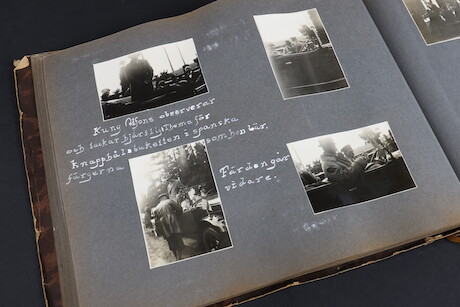 Kung Alfons observerar
och tackar hjärtligt hema för
knapphålsbuketten i spanska
färgerna som hon bär.
Färden går
vidare.